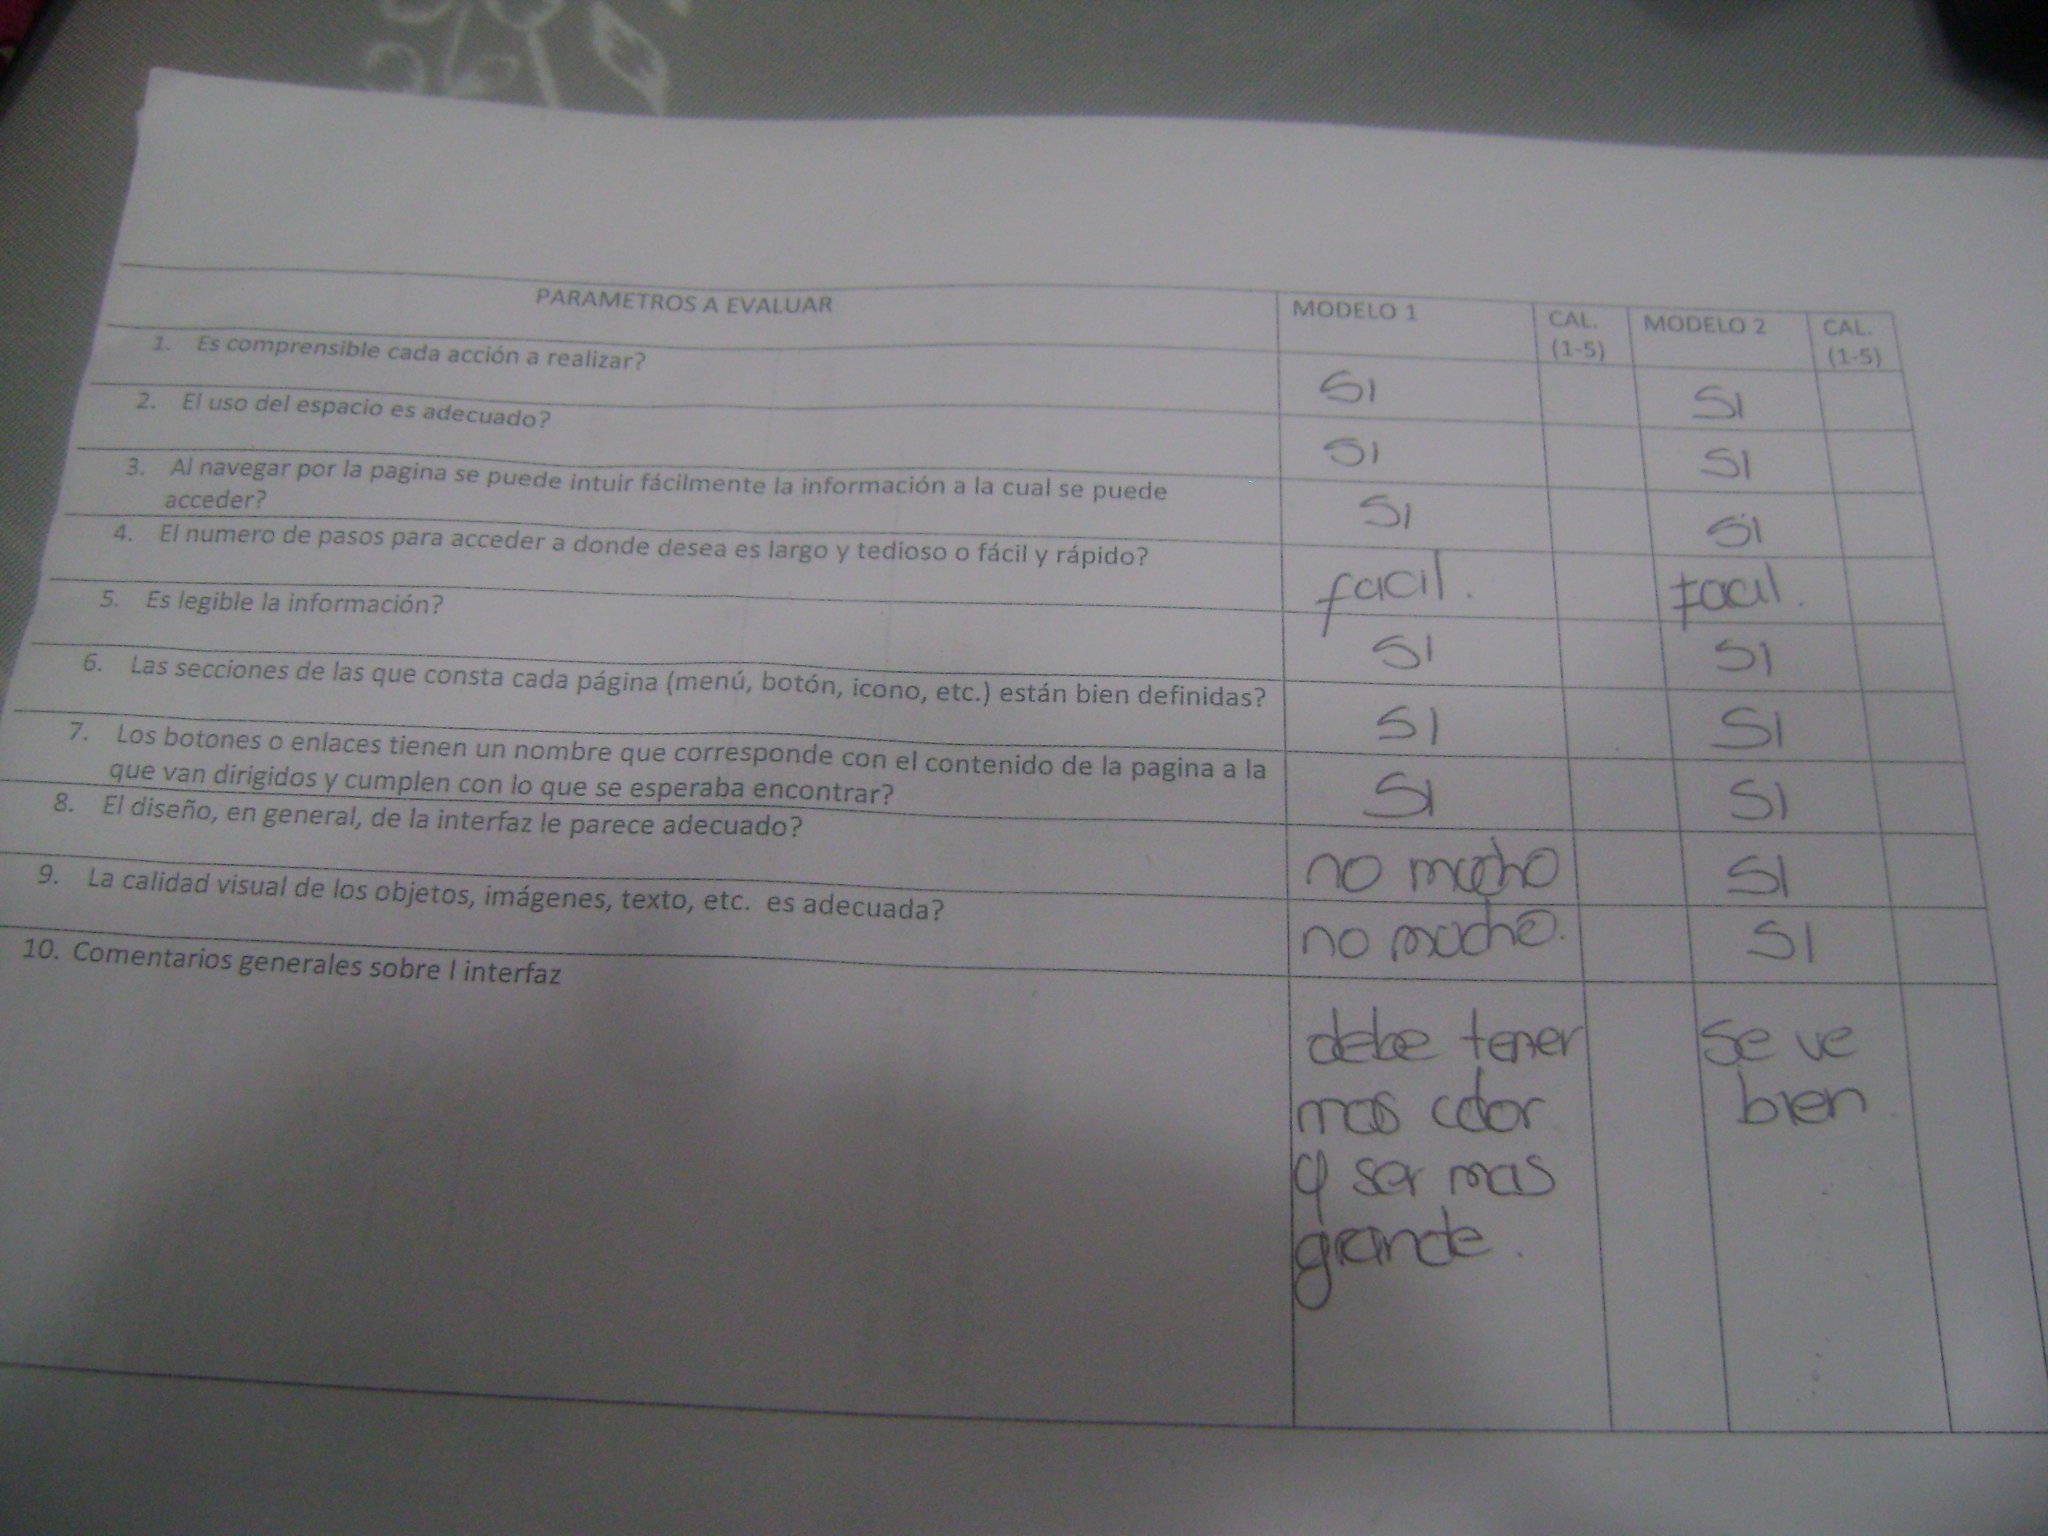 PARAMETROS A EVALUAR MODELO 1 CAL. (1-5) MODELO 2 CAL. (1-5)
1. Es comprensible cada acción a realizar? SI SI
2. El uso del espacio es adecuado? SI SI
3. Al navegar por la pagina se puede intuir fácilmente la información a la cual se puede
acceder? SI SI
4. El numero de pasos para acceder a donde desea es largo y tedioso o fácil y rápido? facil. facil.
5. Es legible la información? SI SI
6. Las secciones de las que consta cada página (menú, botón, icono, etc.) están bien definidas? SI SI
7. Los botones o enlaces tienen un nombre que corresponde con el contenido de la pagina a la
que van dirigidos y cumplen con lo que se esperaba encontrar? SI SI
8. El diseño, en general, de la interfaz le parece adecuado? no mucho SI
9. La calidad visual de los objetos, imágenes, texto, etc. es adecuada? no mucho. SI
10. Comentarios generales sobre l interfaz
debe tener
mas color
y ser mas
grande.
se ve
bien